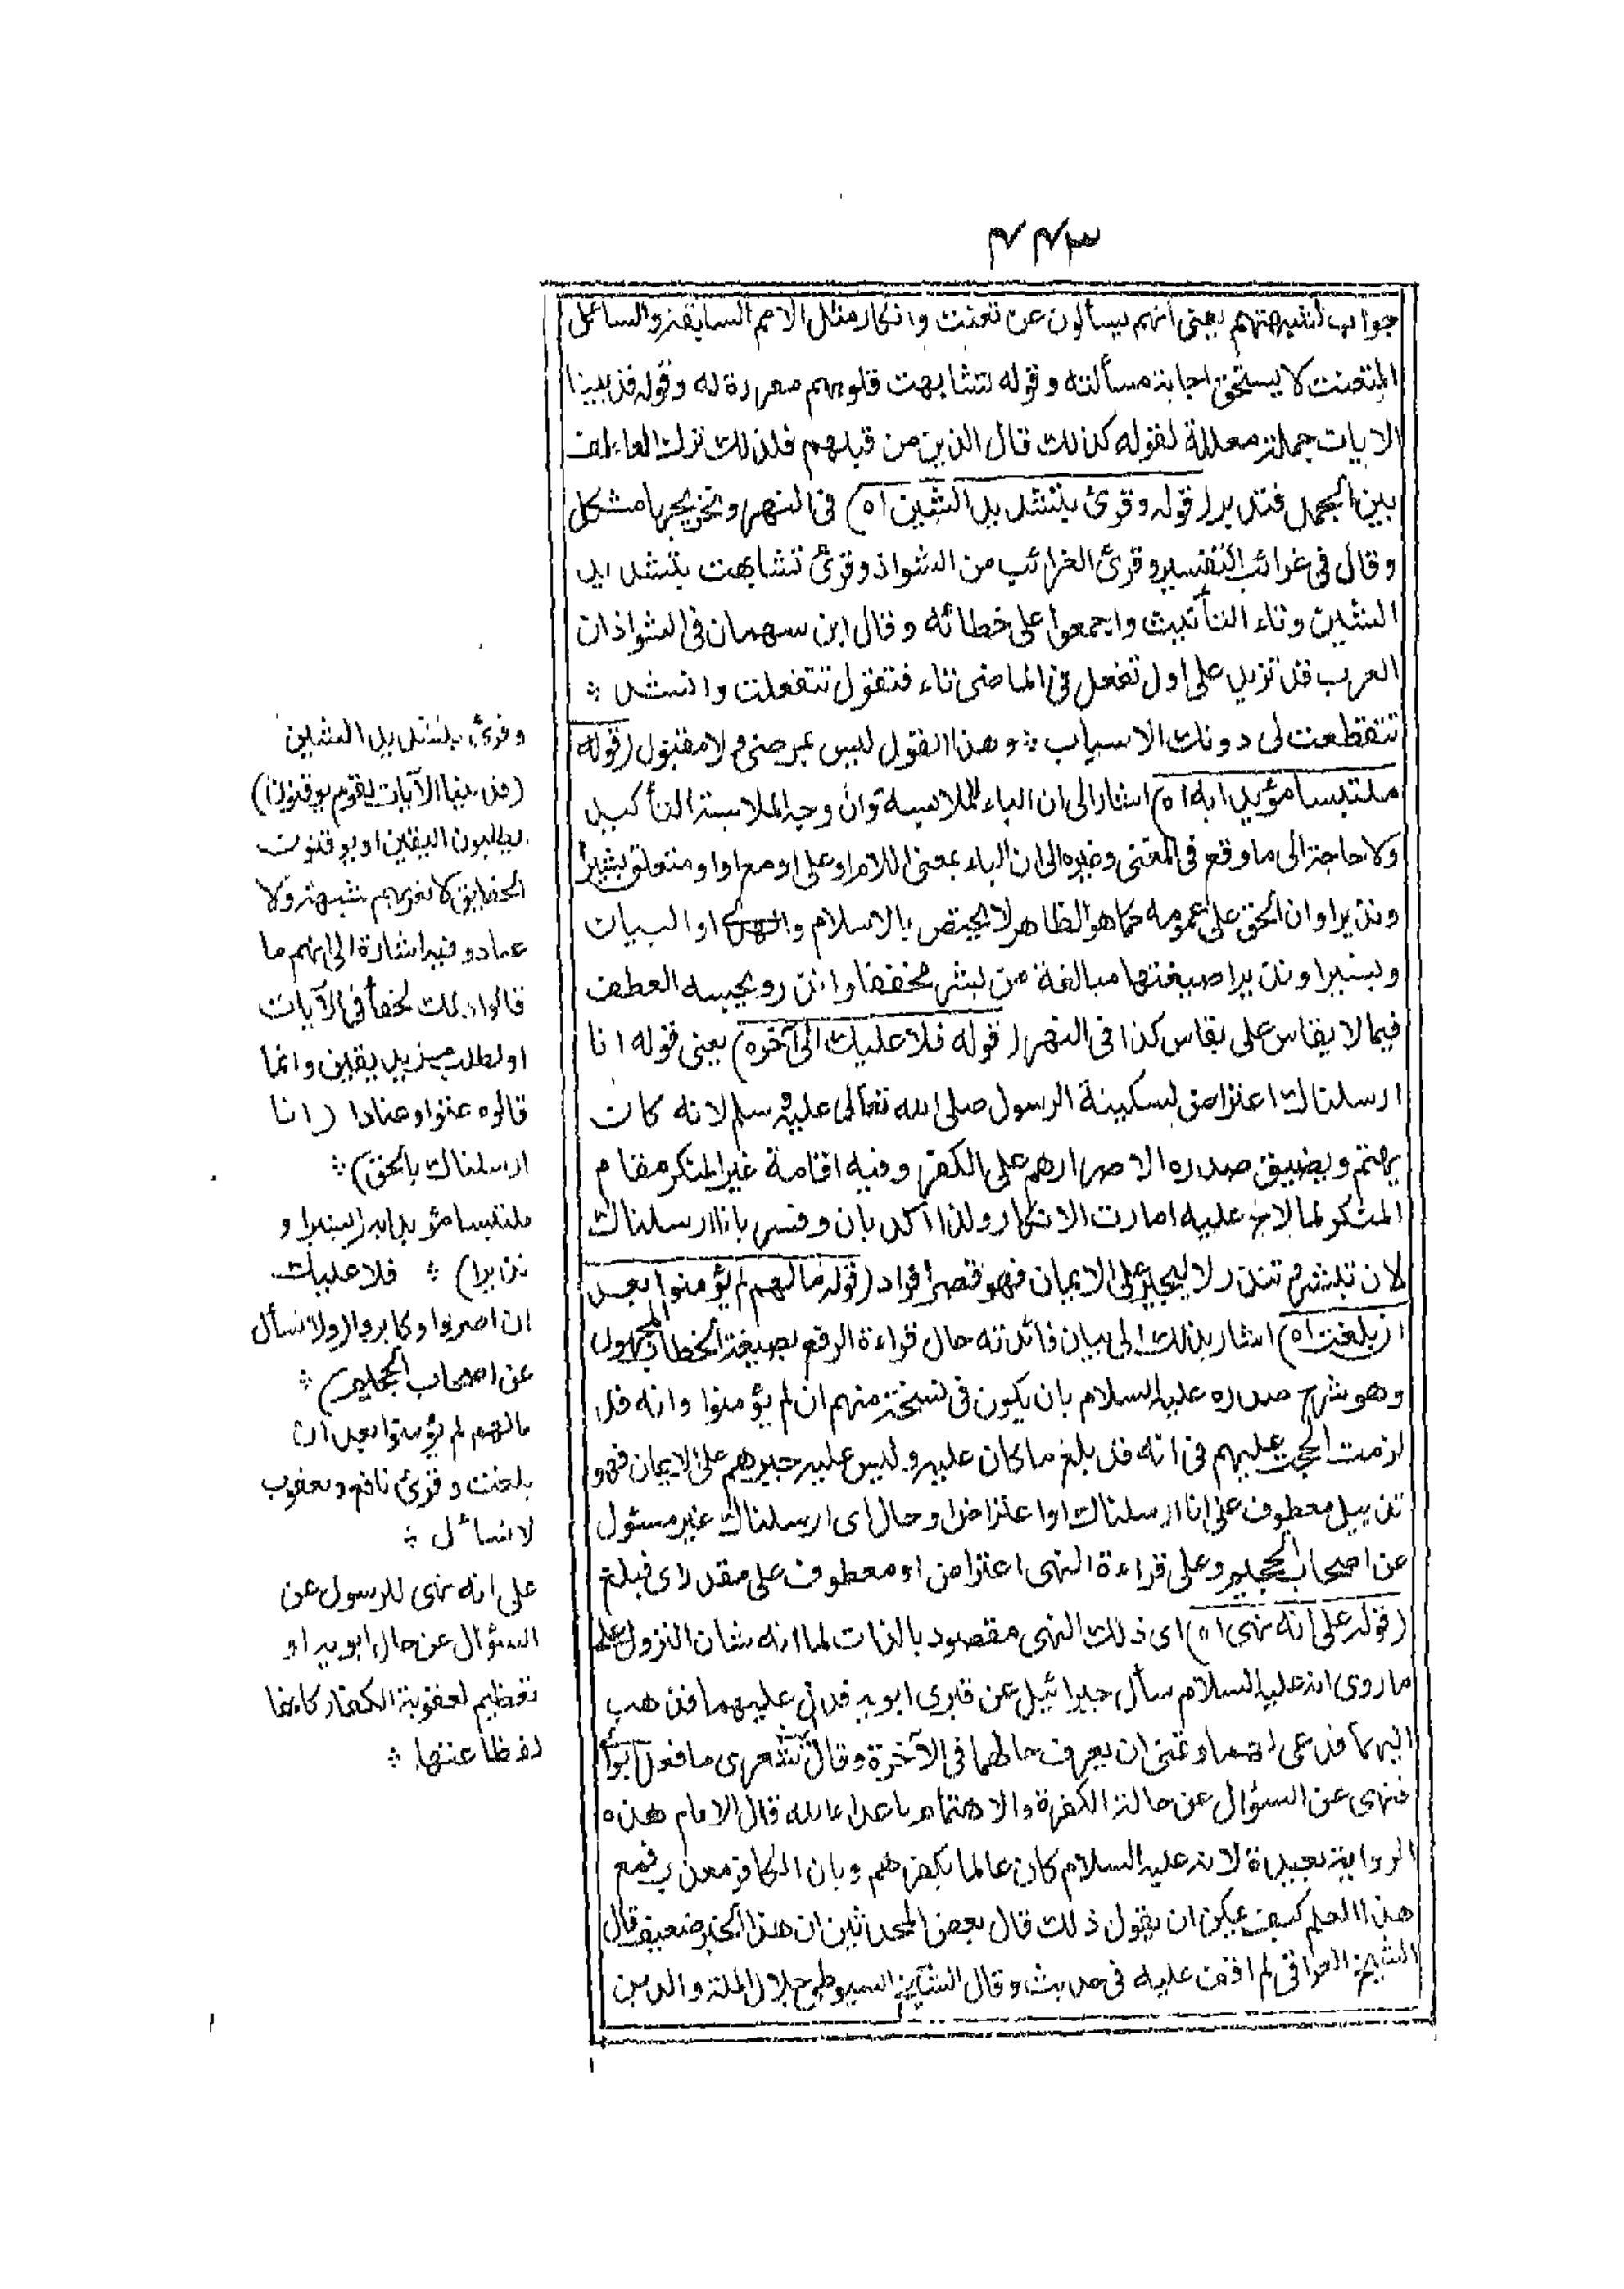 ٤٤٣
جوابہ لشبهتهم يعنى انهم يسألون عن تعنت وانكار مثل الامم السابقة والسائل
المتعنت لا يستحق اجابة مسألته وقوله تشابهت قلوبهم مقررة له وقوله قد بينا
الايات جملة معللة لقوله كذلك قال الذين من قبلهم فلذلك ترك العاطف
بين الجمل فتدبر (قوله وقرئ بتشديد الشين اه) فى النهر وتخريجها مشكل
وقال فى غرائب التفسير وقرئ الغرائب من الشواذ وقرئ تشابهت بتشديد
الشين وتاء التأنيث واجمعوا على خطائه وقال ابن سهمان فى الشواذ ان
العرب قد تزيد على اول تفعل فى الماضى تاء فتقول تتفعلت وانشد ؞
تتقطعت لى دونك الاسباب ؞ وهذا القول ليس بمرضى ولا مقبول (قوله
ملتبسا مؤيدا به اه) اشار الى ان الباء للملابسة وان وجه الملابسة التأكيد
ولا حاجة الى ما وقع فى المغنى وغيره الى ان الباء بمعنى اللام او على او مع او متعلق بشيرا
ونذيرا وان الحق على عمومه كما هو الظاهر لا يختص بالاسلام والهدى او البيان
وبشيرا ونذيرا صيغتها مبالغة من بشر مخففا وانذر ويحبسه العطف
فيما لا يقاس على يقاس كذا فى النهر (قوله فلا عليك الى آخره) يعنى قوله انا
ارسلناك اعتراض لسكينة الرسول صلى الله تعالى عليه وسلم لانه كان
يهتم ويضيق صدره الاصرارهم على الكفر وفيه اقامة غير المنكر مقام
المنكر لما لاح عليه امارت الانكار ولذا اكد بان وفسر بانا ارسلناك
لان تبشر وتنذر لا ليجبر على الايمان فهو قصر افراد (قوله ما لهم لم يؤمنوا بعد
ان بلغت اه) اشار بذلك الى بيان فائدته حال قراءة الرفع بصيغة الخطاب المجهول
وهو شرح صدره عليه السلام بان يكون فى نسخة منهم ان لم يؤمنوا وانه قد
لزمت الحجة عليهم فى انه قد بلغ ما كان عليه وليس عليه جبرهم على الايمان فهو
تذييل معطوف على انا ارسلناك او اعتراض او حال اى ارسلناك غير مسئول
عن اصحاب الجحيم وعلى قراءة النهى اعتراض او معطوف على مقدر اى فبلغ
(قوله على انه نهى اه) اى ذلك النهى مقصود بالذات لما انه شان النزول على
ما روى انه عليه السلام سأل جبرائيل عن قبرى ابويه فدل عليهما فذهب
اليهما فدعى لهما وتمنى ان يعرف حالهما فى الآخرة وقال ليت شعرى ما فعل ابواى
فنهى عن السؤال عن حالة الكفرة والاهتمام باعداء الله قال الامام هذه
الرواية بعيدة لانه عليه السلام كان عالما بكفرهم وبان الكافر معذب فمع
هذا العلم كيف يمكن ان يقول ذلك قال بعض المحدثين ان هذا الخبر ضعيف قال
الشيخ العراقى لم اقف عليه فى حديث وقال الشيخ السيوطى جلال الملة والدين
وقرئ بتشديد الشين
(قد بينا الآيات لقوم يوقنون)
يطلبون اليقين او يوقنون
الحقايق لا يعتريهم شبهة ولا
عناد وفيه اشارة الى انهم ما
قالوا ذلك لخفأ فى الآيات
او لطلب مزيد يقين وانما
قالوه عتوا وعنادا (انا
ارسلناك بالحق) ؞
ملتبسا مؤيدا به (بشيرا و
نذيرا) ؞ فلا عليك
ان اصروا وكابروا (ولا تسأل
عن اصحاب الجحيم) ؞
ما لهم لم يؤمنوا بعد ان
بلغت وقرئ نافع ويعقوب
لا تسأل ؞
على انه نهى للرسول عن
السؤال عن حال ابويه او
تعظيم لعقوبة الكفار كانها
لفظاعتها ؞